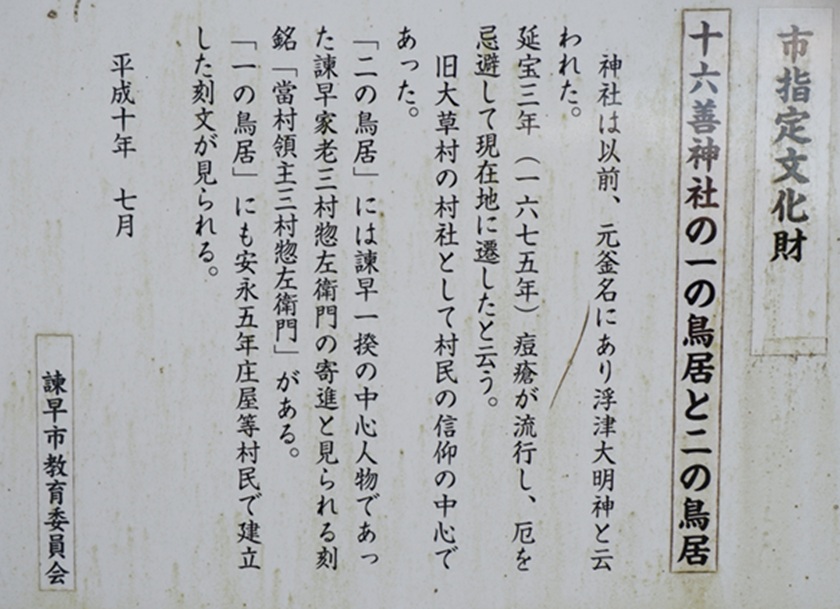 市指定文化財
十六善神社の一の鳥居と二の鳥居
神社は以前、元釜名にあり浮津大明神と云
われた。
延宝三年（一六七五年）痘瘡が流行し、厄を
忌避して現在地に遷したと云う。
旧大草村の村社として村民の信仰の中心で
あった。
「二の鳥居」には諫早一揆の中心人物であっ
た諫早家老三村惣左衛門の寄進と見られる刻
銘「當村領主三村惣左衛門」がある。
「一の鳥居」にも安永五年庄屋等村民で建立
した刻文が見られる。
平成十年　七月
諫早市教育委員会